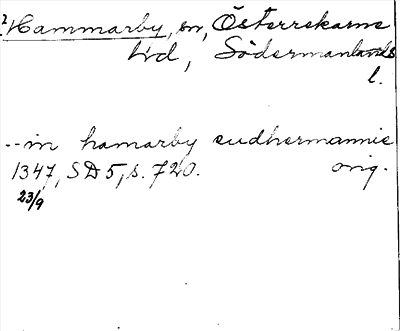 ?Hammarby, sn, Österrekarne
hd, Södermanlands
l.
--in hamarby sudhermannie
1347, SD 5, s. 720. orig.
23/9